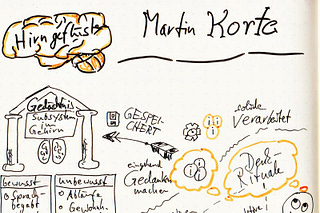 Hirngeflüster
Martin Korte
Gedächtnis
Subsystem
im
Gehirn
GESPEI
CHERT
solide
verarbeitet
eingehend
Gedanken
machen
Denk-
Rituale
bewusst
Sprach-
begabt
unbewusst
Abläufe
Gewohnh.